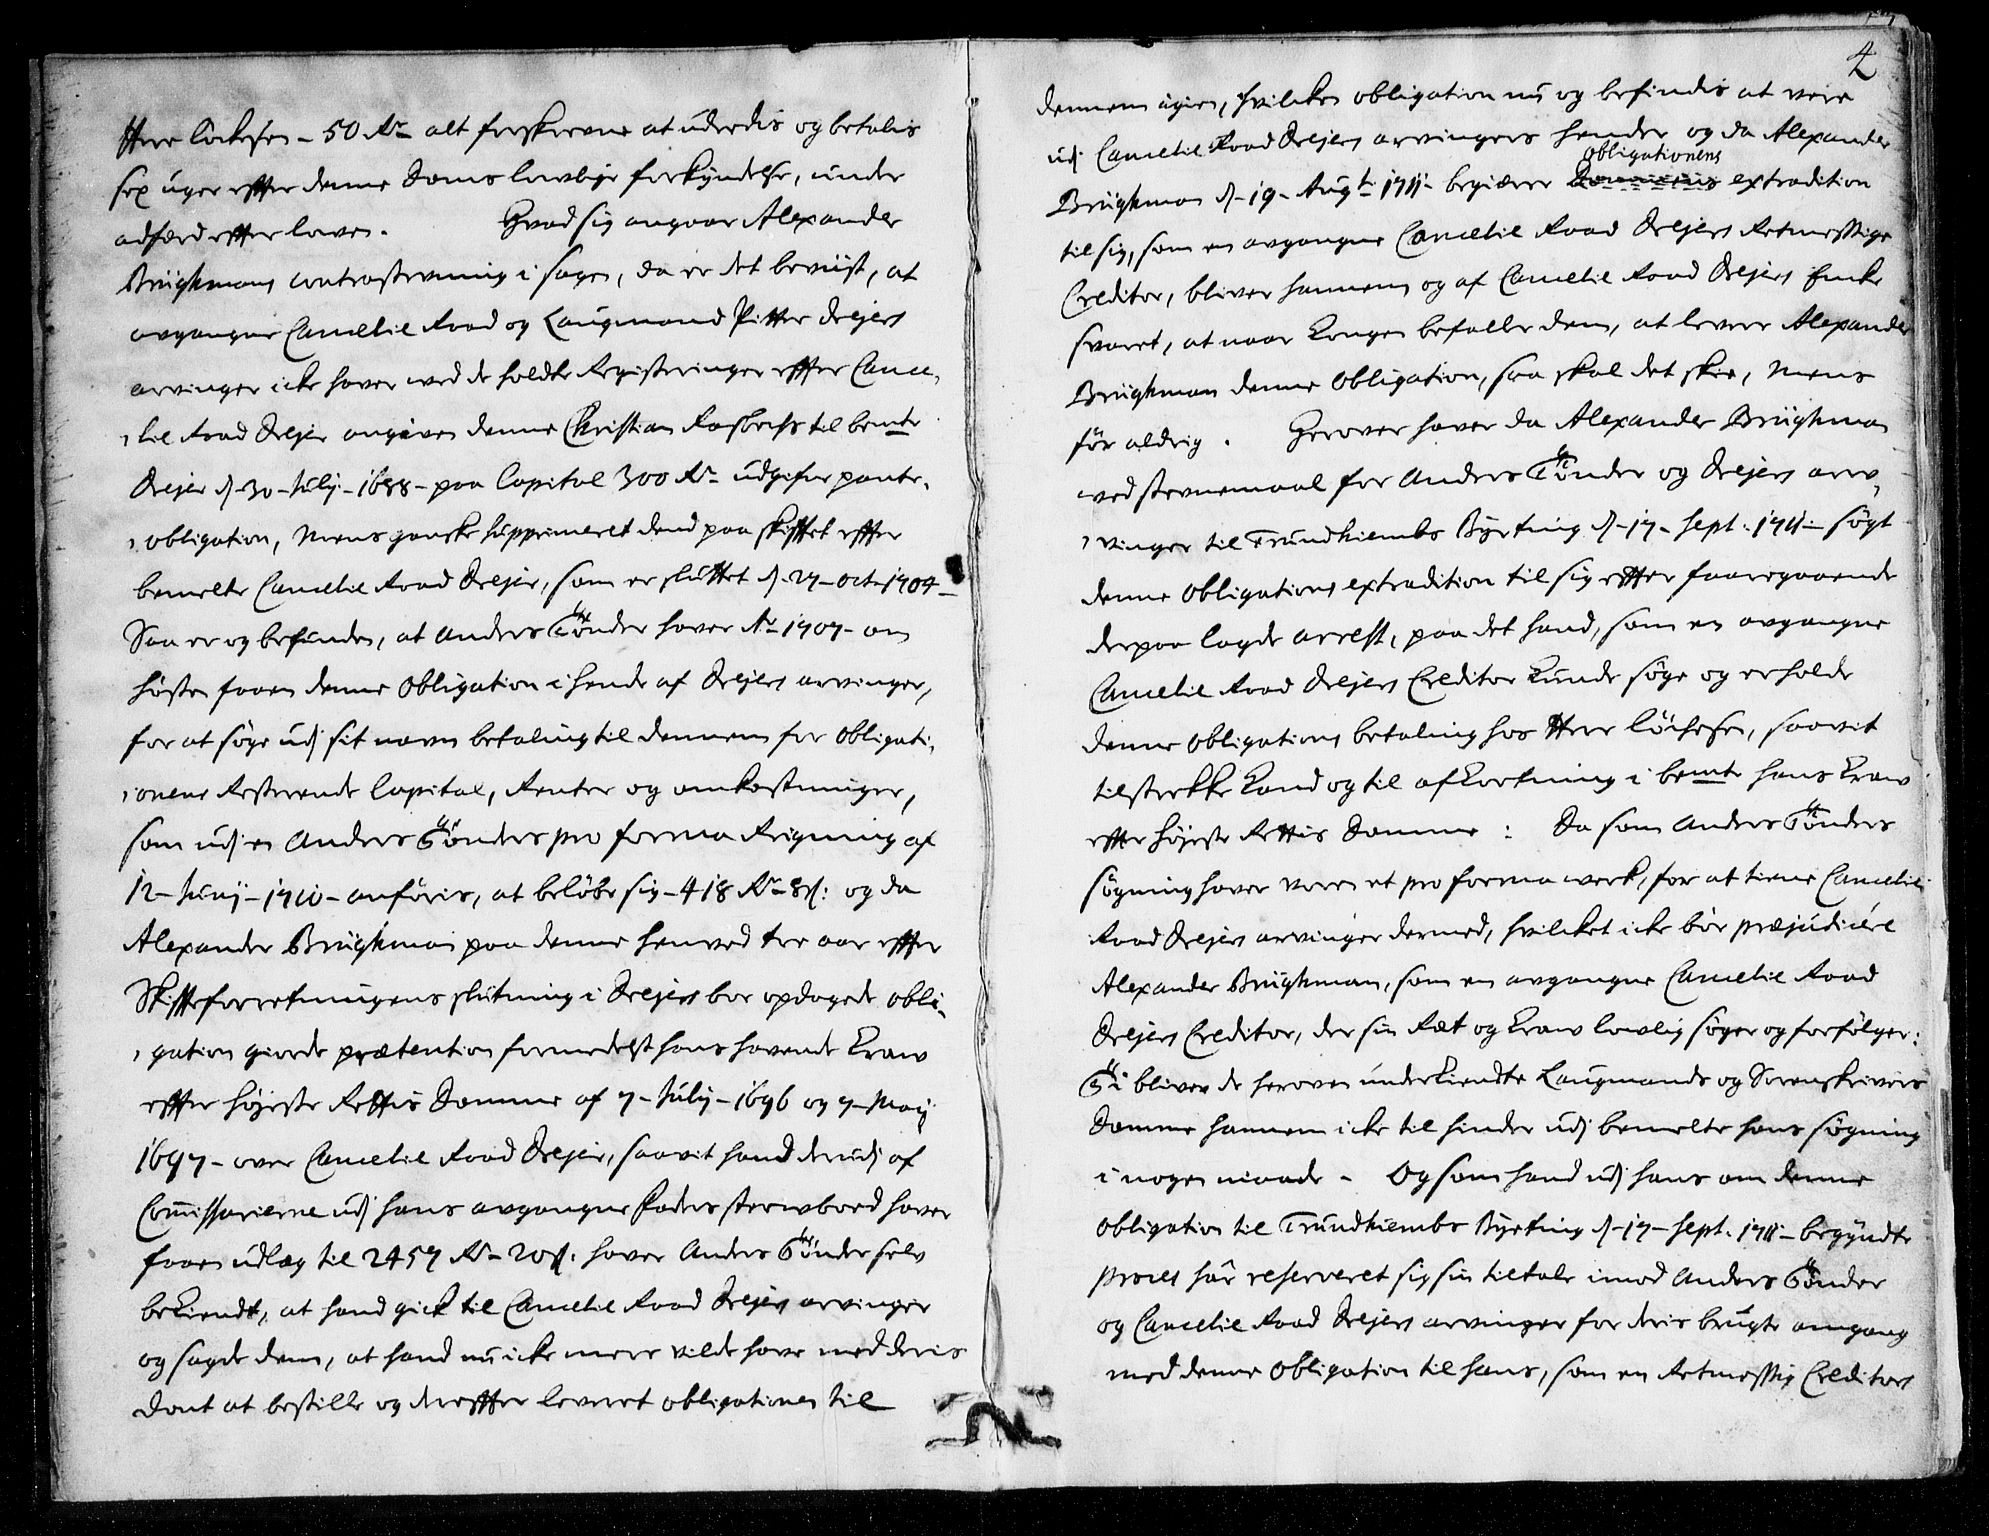 Herr Lockesen - 50 Rdr alt forskrevne at uderdis og betalis
sex uger effter denne Doms lovlige forkyndelse, under
adfærd effter loven. Hvad sig angaar Alexander
Brüghmans contrastevning i sagen, da er det beviist, at
avgangne Cancelie Raad og Laugmand Pitter Drejers
arvinger icke haver wed de holdte Registeringer effter Cance,
,lie Raad Drejer angiven denne Christian Rasbechs til bemte
Drejer d. 30 - Julij - 1688 - paa Capital 300 Rdr udgifne pante,
,obligation, mens ganske supprimeret dend paa skifftet effter
bemelte Cancelie Raad Drejer, som er sluttet d. 27 - oct - 1704 -
Saa er og befunden, at Anders Tønder haver Ao 1707 - om
høsten faaen denne obligation i hende af Drejers arvinger,
for at søge udj sit navn betaling til dennem for obligati,
,onens Resterende Capital, Renter og omkostninger,
som udj en Anders Tønders pro forma Reigning af
12 - Junij - 1710 - anføris, at beløbe sig - 418 Rdr 8 s: og da
Alexander Brüghman paa denne henved tre aar effter
Skiffteforretningens slutning i Drejers boe opdagede obli,
,gation giorde prætention formedelst hans havende Kraw
effter højeste Rettis Domme af 7 - Julij - 1696 og 7 - Maij
1697 - over Cancelie Raad Drejer, saavit hand derudj af
Commissarierne udj hans avgangne Faders sterwboed haver
faaen udlæg til 2457 Rdr - 20 s: haver Anders Tønder selv
bekiendt, at hand gick til Cancelie Raad Drejers arvinger
og sagde dem, at hand nu icke mere vilde have med deris
Dont at bestille og dereffter leveret obligationen til
4
dennem igien, hvilcken obligation nu og befindis at vere
udj Cancelie Raad Drejers arvingers hender og da Alexander
obligationens
Brüghman d. 19 - Augti 1711 - begiærer extradition
til sig, som en avgangne Cancelie Raad Drejers Retmessige
Creditor, bliver hannem og af Cancelie Raad Drejers Encke
svaret, at naar Kongen befaller dem, at levere Alexander
Brüghman denne obligation, saa skal det skee, mens
før aldrig. Herover haver da Alexander Brüghman
ved stevnemaal for Anders Tønder og Drejers arv,
,vinger til Trundhiembs Byeting d. 17 - Sept. 1711 - søgt
denne obligations extradition til sig effter foregaaende
derpaa lagde arrest, paa det hand, som en avgangne
Cancelie Raad Drejers Creditor kunde søge og erholde
denne obligations betaling hos Herr Löchesen, saavit
tilstrekke kand og til afkortning i bemte hans kraw
effter højeste Rettis Domme: Da som Anders Tønders
søgning haver veren et pro forma werk, for at tiene Cancelie
Raad Drejers arvinger dermed, hvilcket icke bør præjudicére
Alexander Brüghman, som en avgangne Cancelie Raad
Drejers Creditor, der sin Ræt og kraw lovlig søger og forfølger:
Ti bliver de herover underkiendte Laugmands og Sorenskrivers
Domme hannem icke til hinder udj bemelte hans søgning
i nogen maade - Og som hand udj hans om denne
obligation til Trundhiembs Byeting d. 17 - Sept. 1711 - begyndte
proces har reserveret sig sin tiltale imod Anders Tønder
og Cancelie Raad Drejers arvinger for deris brugte omgang
med denne obligation til hans, som en Retmessig Creditors